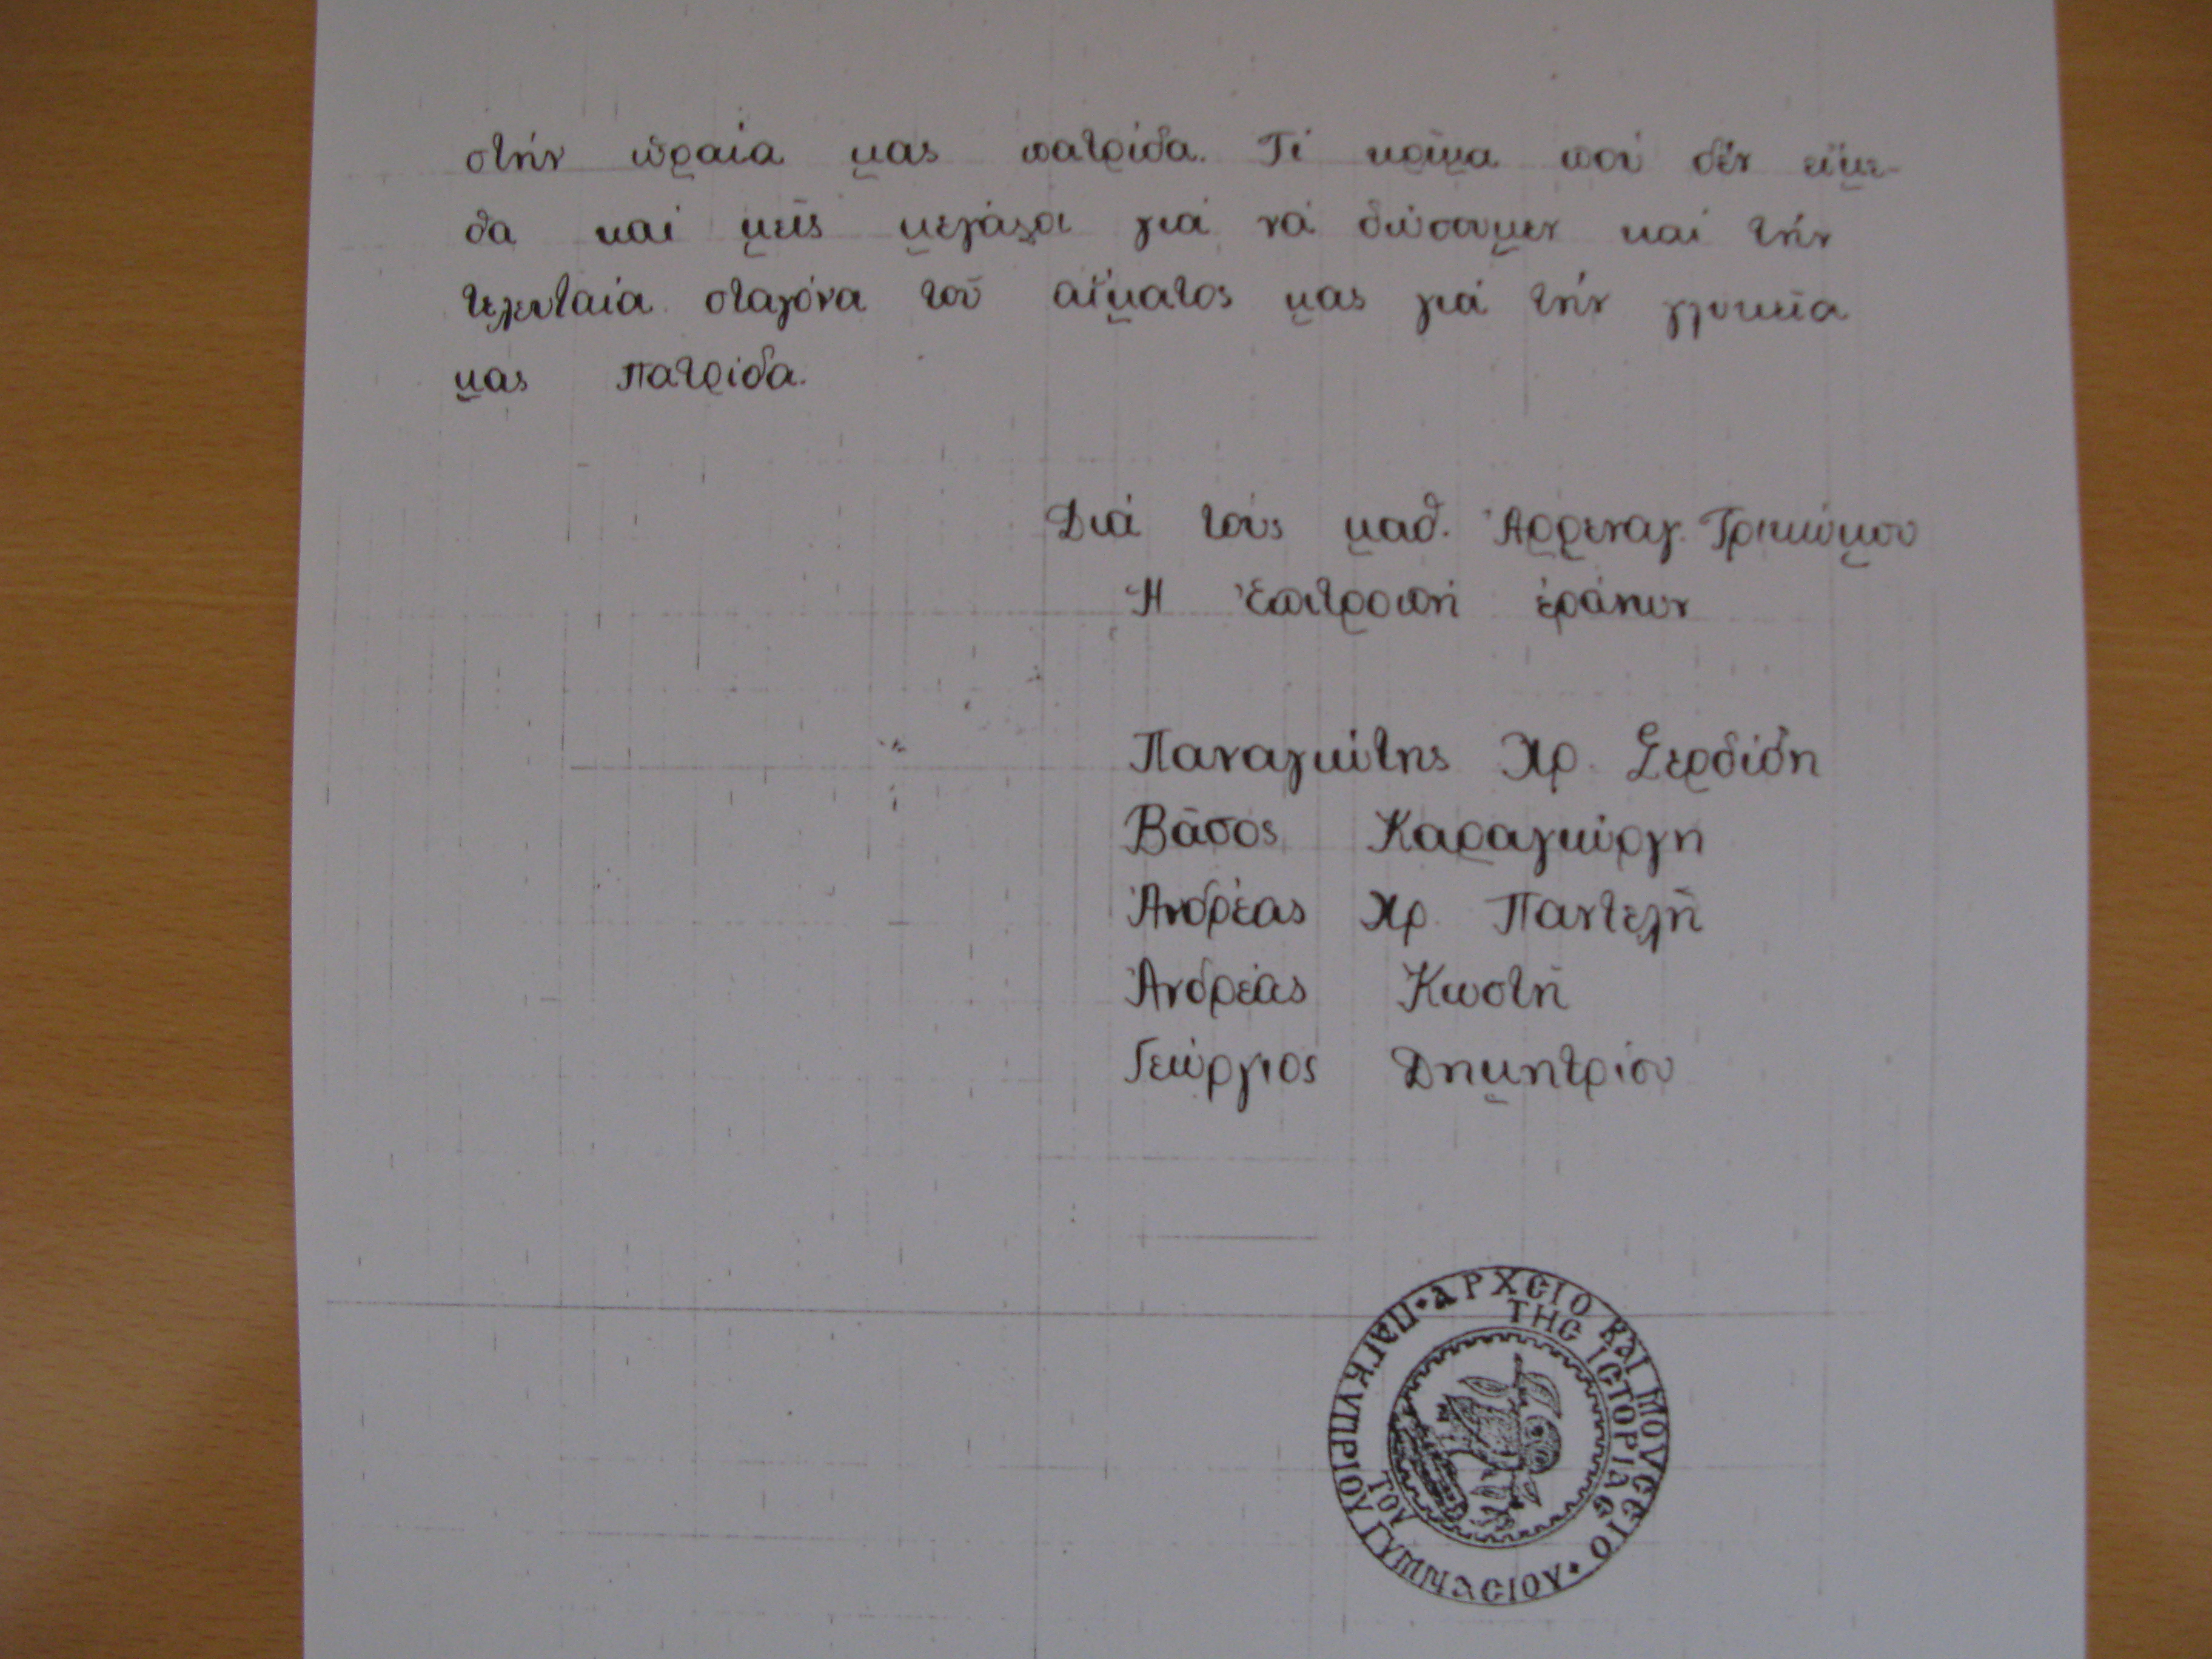 στήν ὡραία μας πατρίδα. Τί κρῖμα πού δέν εἴμε-
θα καί μεῖς μεγάλοι γιά νά δώσουμεν καί τήν
τελευταία σταγόνα τοῦ αἵματος μας γιά τήν γλυκειᾶ
μας πατρίδα.
Διά τούς μαθ. Ἀρρεναγ. Τρικώμου
Ἡ Ἐπιτροπή ἐράνων
Παναγιώτης Χρ. Σερδίδη
Βᾶσος Καραγιώργη
Ἀνδρέας Χρ. Παντελῆ
Ἀνδρέας Κωστῆ
Γεώργιος Δημητρίου
ΑΡΧΕΙΟ ΚΑΙ ΜΟΥΣΕΙΟ
ΤΗΣ ΙΣΤΟΡΙΑΣ
ΤΟΥ
ΠΑΓΚΥΠΡΙΟΥ ΓΥΜΝΑΣΙΟΥ